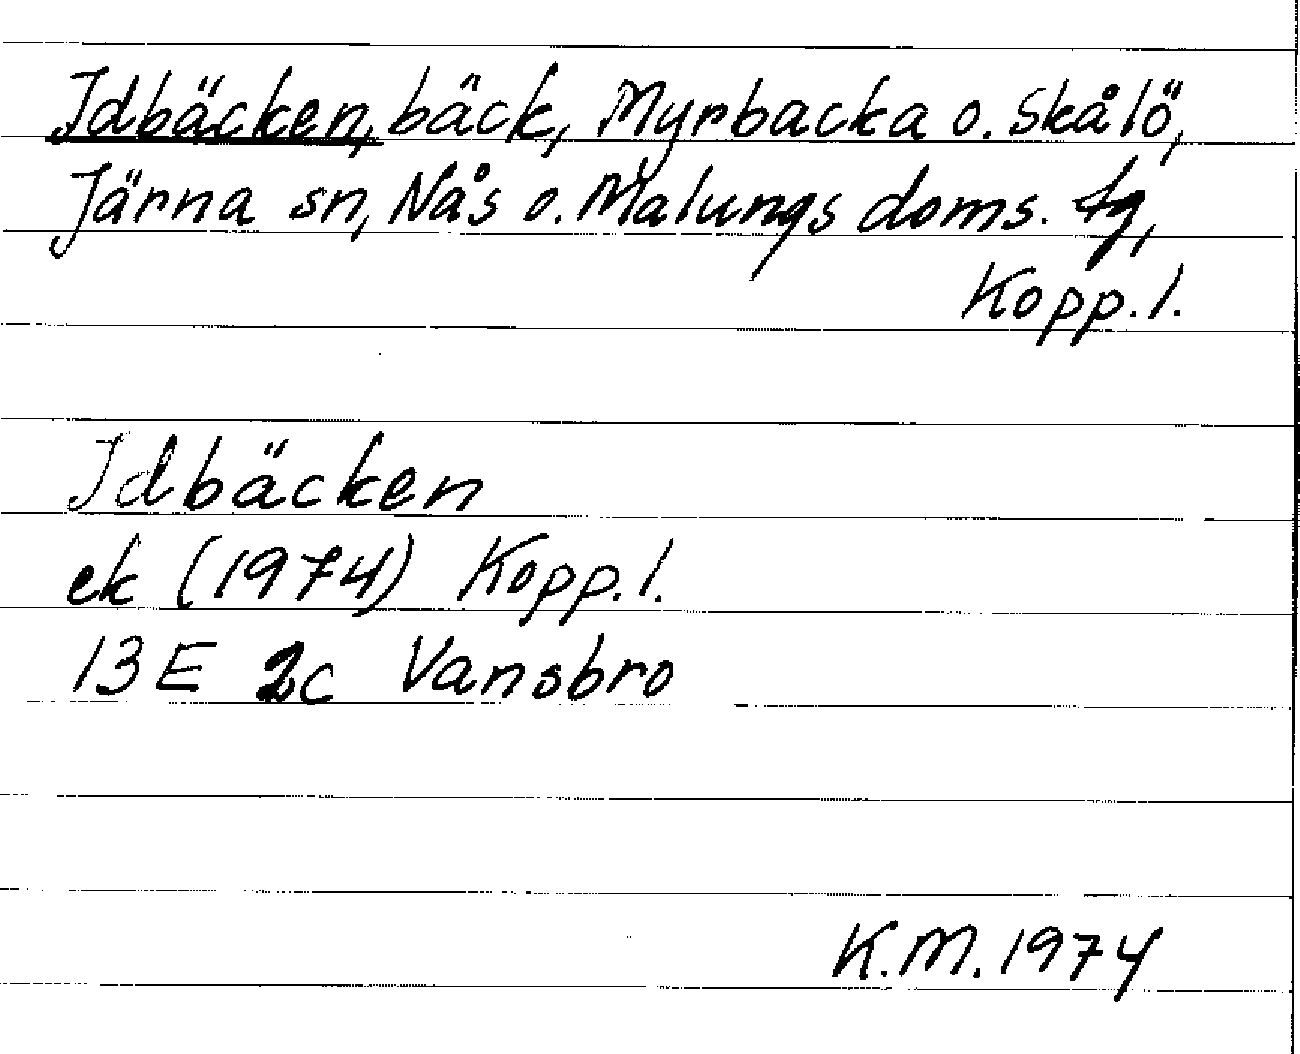 Idbäcken, bäck, Myrbacka o. Skålö,
Järna sn, Nås o. Malungs doms. tg,
Kopp. l.
Idbäcken
ek (1974) Kopp. l.
13 E 2c Vansbro
K.M. 1974